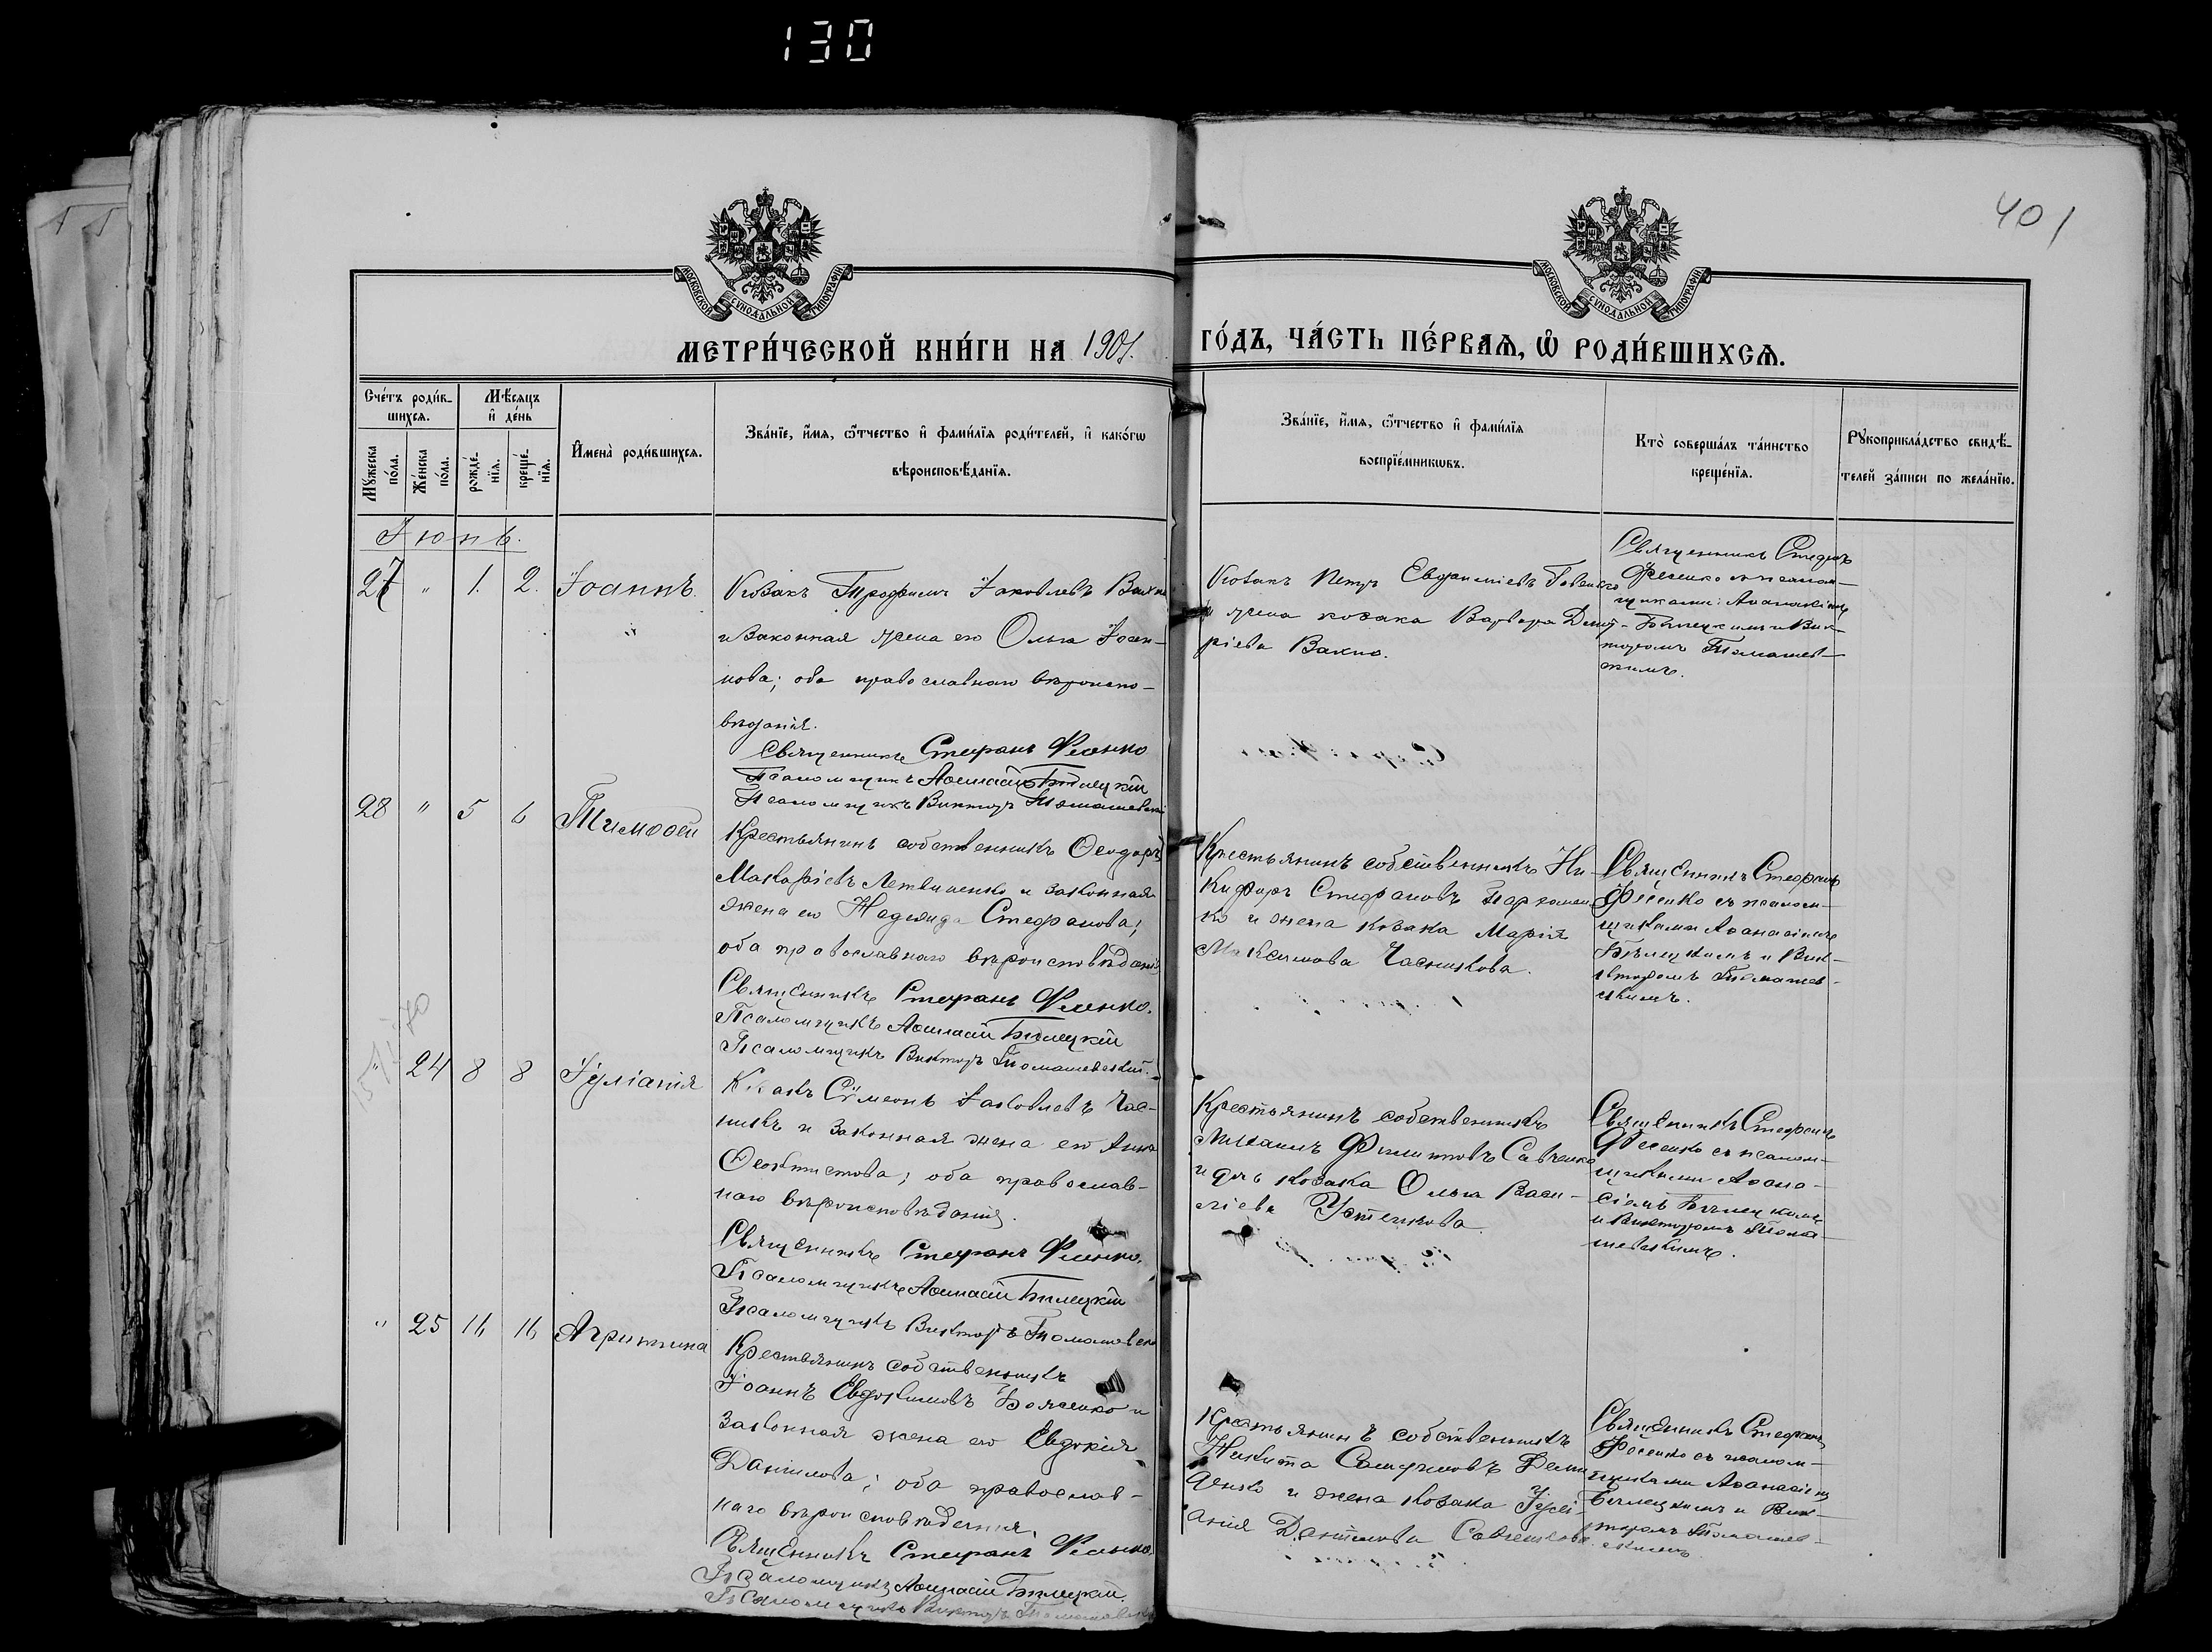 130
401
МОСКОВСКОЙ СУНОДАЛЬНОЙ ТИПОГРАФІИ
МОСКОВСКОЙ СУНОДАЛЬНОЙ ТИПОГРАФІИ
МЕТРИ́ЧЕСКОЙ КНИ́ГИ НА 1901.
ГО́ДЪ, ЧА́СТЬ ПЕ́РВАѦ, Ѡ РОДИ́ВШИХСѦ.
Сче́тъ роди́в-
шихсѧ.
Мѣ́сѧцъ
и҆ де́нь
Мꙋ́жеска по́ла.
Же́нска по́ла.
рожде́нїѧ.
креще́нїѧ.
И҆мена̀ роди́вшихсѧ.
Зва́нїе, и҆́мѧ, ѻ҆́тчество и҆ фами́лїѧ роди́телей, и҆ како́гѡ
вѣроисповѣ́данїѧ.
Зва́нїе, и҆́мѧ, ѻ҆́тчество и҆ фами́лїѧ
воспрїе́мникѡвъ.
Кто̀ соверша́лъ та́инство
креще́нїѧ.
Рꙋкоприкла́дство свидѣ́-
телей за́писи по жела́нїю.
Іюнь.
27 " 1. 2. Іоаннъ.
Козакъ Трофимъ Іаковлевъ Вакно
и законная жена его Ольга Іоан-
нова; оба православнаго вѣроиспо-
вѣданія.
Священникъ Стефанъ Фесенко
Псаломщикъ Аѳанасій Бѣлецкій
Псаломщикъ Викторъ Томашевскій
Козакъ Петръ Евфиміевъ
и жена козака Варвара Димит-
ріева Вакно.
Священникъ Стефанъ
Фесенко съ псалом-
щиками: Аѳанасіемъ
Бѣлецкимъ и Вик-
торомъ Томашев-
скимъ.
28 " 5 6 Тимоѳей
Крестьянинъ собственникъ Ѳеодоръ
Макаріевъ Литвиненко и законная
жена его Надежда Стефанова;
оба православнаго вѣроисповѣданія
Священникъ Стефанъ Фесенко.
Псаломщикъ Аѳанасій Бѣлецкій
Псаломщикъ Викторъ Томашевскій.
Крестьянинъ собственникъ Ни-
кифоръ Стефановъ Пархомен-
ко и жена козака Марія
Максимова Часникова.
Священникъ Стефанъ
Фесенко съ псалом-
щиками Аѳанасіемъ
Бѣлецкимъ и Вик-
торомъ Томашев-
скимъ.
" 24 8 8 Іуліанія
Козакъ Сѵмеонъ Іаковлевъ Час-
никъ и законная жена его Анна
Ѳеоктистова; оба православ-
наго вѣроисповѣданія.
Священникъ Стефанъ Фесенко.
Псаломщикъ Аѳанасій Бѣлецкій
Псаломщикъ Викторъ Томашевскій
Крестьянинъ собственникъ
Михаилъ Филиповъ Савченко
и дочь козака Ольга Васи-
ліева Устенкова.
Священникъ Стефанъ
Фесенко съ псалом-
щиками Аѳана-
сіемъ Бѣлецкимъ
и Викторомъ Тома-
шевскимъ.
" 25 16 16 Агрипина
Крестьянинъ собственникъ
Іоаннъ Евдокимовъ Боженко и
законная жена его Евдокія
Даніилова; оба православ-
наго вѣроисповѣданія.
Священникъ Стефанъ Фесенко.
Псаломщикъ Аѳанасій Бѣлецкій.
Псаломщикъ Викторъ Томашевскій
Крестьянинъ собственникъ
Никита Деми-
денко и жена козака Іулі-
анія Даніилова Савченкова.
Священникъ Стефанъ
Фесенко съ псалом-
щиками Аѳанасіемъ
Бѣлецкимъ и Вик-
торомъ Томашев-
скимъ.